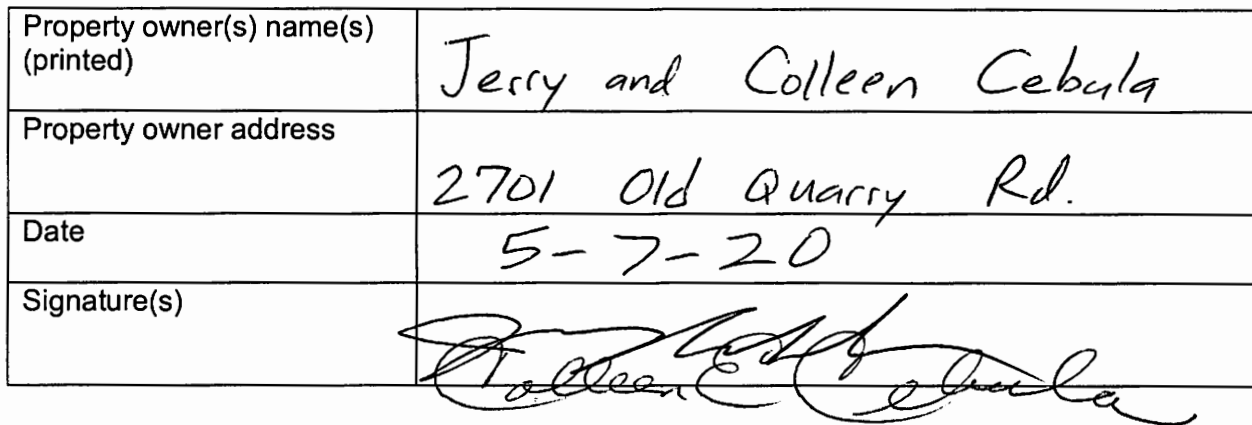 Property owner(s) name(s)
(printed)
Jerry and Colleen Cebula
Property owner address
2701 Old Quarry Rd.
Date
5-7-20
Signature(s)
Colleen E Cebula